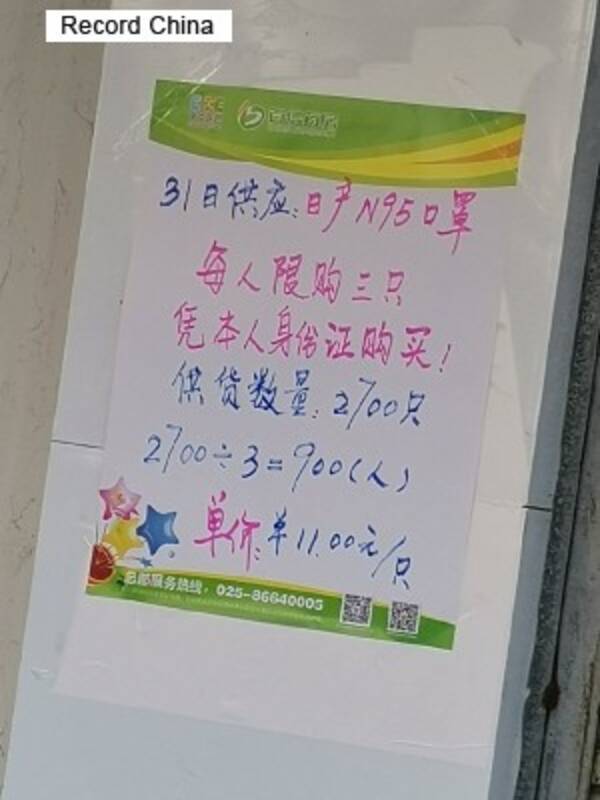 Record China
31日供应:日产N95口罩
每人限购三只
凭本人身份证购买!
供货数量:2700只
2700÷3=900(人)
单价:¥11.00元/只
总部服务热线:025-86640005